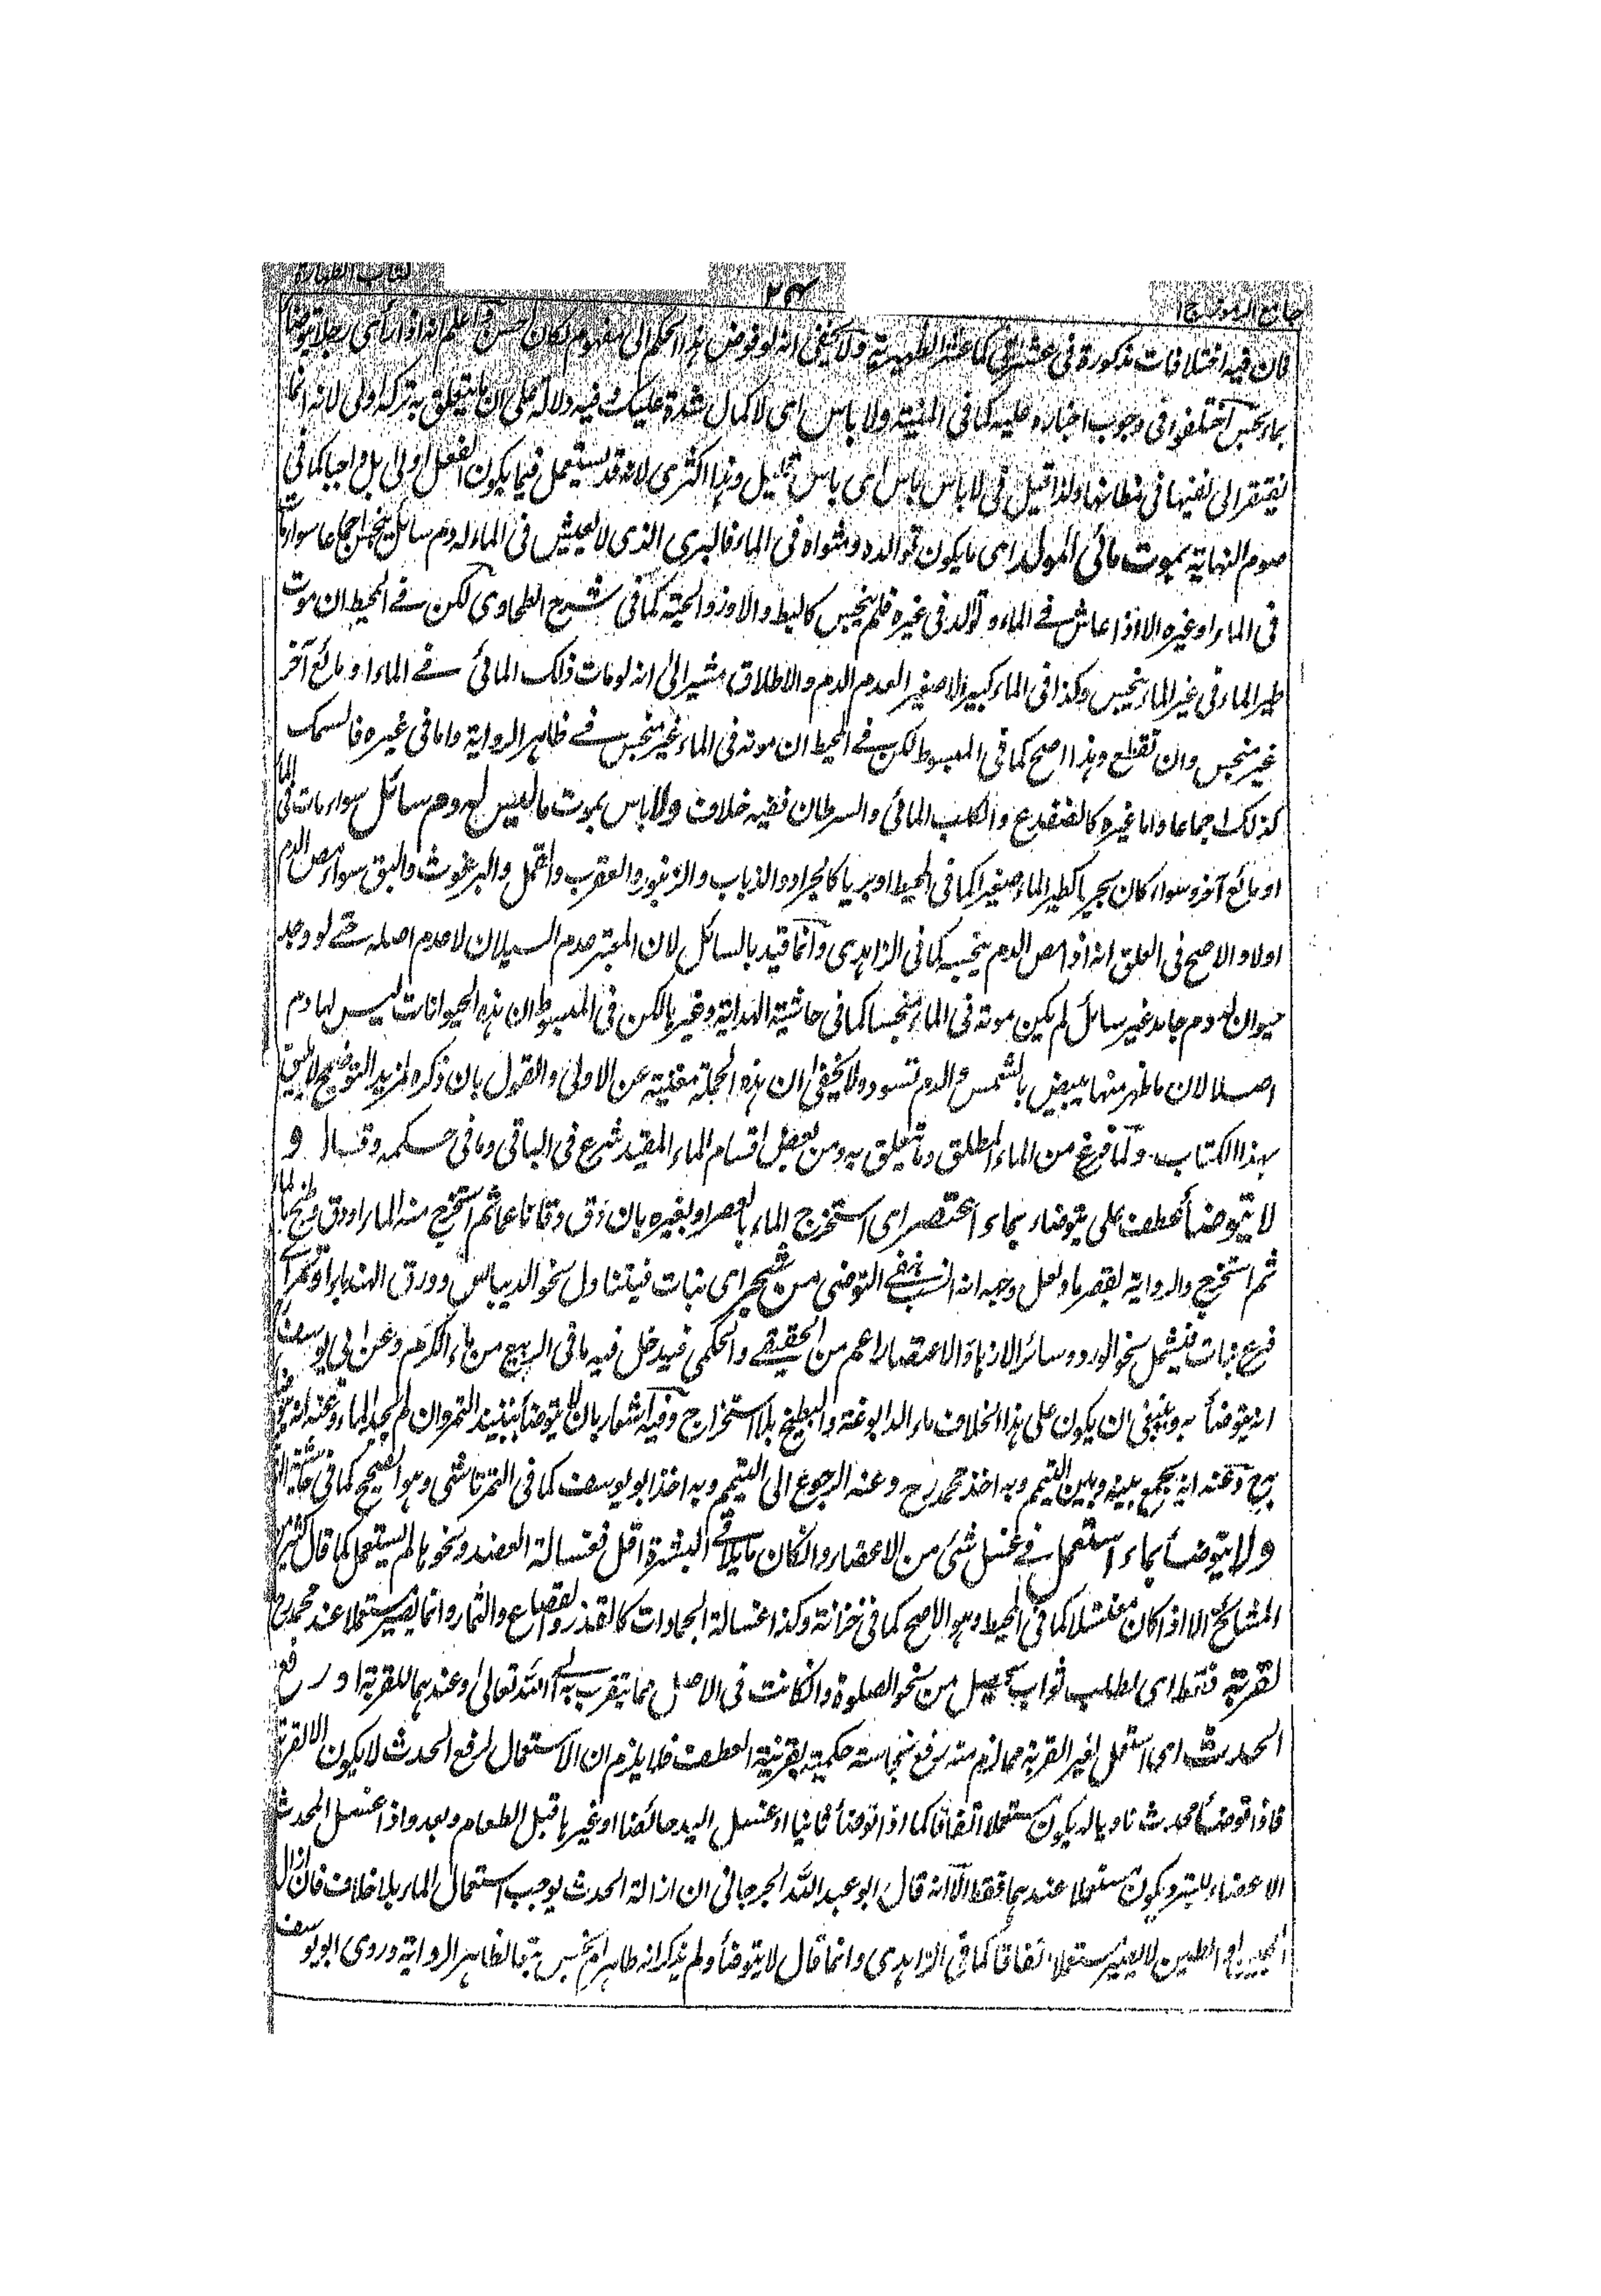 كتاب الطهارة
٢٤
جامع الرموز ج ١
فان فيه اختلافات مذكورة فى عشر كما فى الظهيرية ولا يخفى انه لو فوض هذا الحكم الى مفهوم لكان احسن واعلم انه اذا رأى رجلا يتوضأ
بماء نجس اختلفوا فى وجوب اخباره عليه كما فى المنية ولا باس اى لا كمال شدة عليك وفيه دلالة على ان ما يتعلق به تركه اولى لانه انما
يفتقر الى نفيها فى مظانها ولذا قيل فى لا باس باس اى باس قليل وهذا اكثرى لانه قد يستعمل فيما يكون الفعل اولى بل واجبا كما فى
صوم النهاية بموت مائى المولد اى ما يكون توالده ومثواه فى الماء فالبرى الذى لا يعيش فى الماء له دم سائل ينجس اجماعا سواء مات
فى الماء او غيره الا اذا عاش فے الماء و توالد فى غيره فلم ينجس كالبط والاوز والحية كما فى شرح الطحاوى لكن فے المحيط ان موت
طير الماء فى غير الماء ينجس وكذا فى الماء كبيرا لا صغيرا لعدم الدم والاطلاق مشير الى انه لو مات ذلك المائى فے الماء او مائع آخر
غير منجس وان تقطع وهذا اصح كما فى المبسوط لكن فے المحيط ان موته فى الماء غير منجس فے ظاهر الرواية واما فى غيره فالسمك
كذلك اجماعا واما غيره كالضفدع والكلب المائى والسرطان ففيه خلاف ولا باس بموت ما ليس له دم سائل سواء مات فى الماء
او مائع آخر وسواء كان بحريا كطير الماء صغيرا كما فى المحيط او بريا كالجراد والذباب والزنبور والعقرب والقمل والبرغوث والبق سواء مص الدم
اولا والاصح فى العلق انه اذا مص الدم ينجسه كما فى الزاهدى وانما قيد بالسائل لان المعتبر عدم السيلان لا عدم اصله حتے لو وجد
حيوان له دم جامد غير سائل لم يكن موته فى الماء منجسا كما فى حاشية الهداية وغيرها لكن فى المبسوط ان هذه الحيوانات ليس لها دم
اصلا لان ما ظهر منها يبيض بالشمس والدم تسود ولا يخفى ان هذه الجملة مغنية عن الاولى والقول بان ذكره لمزيد التوضيح لا يليق
بهذا الكتاب. ولما فرغ من الماء المطلق وما يتعلق به ومن بعض اقسام الماء المقيد شرع فى الباقى وما فى حكمه وقال و
لا يتوضأ عطف على يتوضأ بماء اعتصر اى استخرج الماء بالعصر او بغيره بان دق دقا ناعما ثم استخرج منه الماء او دق وطبخ بالماء
ثم استخرج والرواية بقصر ما ولعل وجهه انه انسب بنفے التوضى من شجر اى نبات فيتناول نحو الديباس وورق الهندباء او ثمر اى
فرع نبات فيشمل نحو الورد وسائر الازهار والاعتصار اعم من الحقيقے والحكمى فيدخل فيه ما فى الربيع من ماء الكرم وعن ابى يوسف
انه يتوضأ به وينبغى ان يكون على هذا الخلاف ماء الدابوغة والبطيخ بلا استخراج وفيه اشعار بان لا يتوضأ بنبيذ التمر وان لم يجد الماء وعنه انه يتوضأ
به وعنه انه يجمع بينه وبين التيمم وبه اخذ محمد رح وعنه الرجوع الى التيمم وبه اخذ ابو يوسف كما فى التمرتاشى وهو الصحيح كما فى
ولا يتوضأ بماء استعمل فے غسل شئ من الاعضاء والكان ما يلاقے البشرة اقل فغسالة العضد ونحوها لم يستعمل كما قال كثير من
المشائخ الا اذا كان مغتسلا كما فى المحيط وهو الاصح كما فى خزانة وكذا غسالة الجمادات كالقدر والقصاع والثمار وانما يصير مستعملا عند محمد رح
لقربة فقط اى لطلب ثواب يحصل من نحو الصلوة والكانت فى الاصل مما يتقرب به الے الله تعالى وعندهما للقربة او رفع
الحدث اى استعمل لغير القربة مما لزم منه رفع نجاسة حكمية بقرينة العطف فلا يلزم ان الاستعمال لرفع الحدث لا يكون الا لقربة
فاذا توضأ محدث ناويا له يكون مستعملا اتفاقا كما اذا توضأ ثانيا او غسل اليد حائضا او غيرها قبل الطعام وبعد واذا غسل المحدث
الاعضاء للتبرد يكون مستعملا عندهما فقط الا انه قال ابو عبد الله الجرجانى ان ازالة الحدث يوجب استعمال الماء بلا خلاف فان ازال
العجين او الطين لا يصير مستعملا اتفاقا كما فى الزاهدى وانما قال لا يتوضأ ولم يذكر انه طاهر او نجس تبعا لظاهر الرواية وروى ابو يوسف